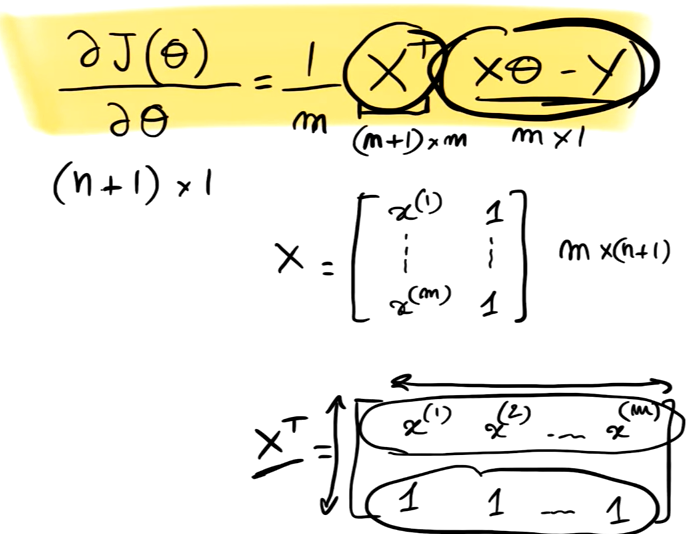 ∂J(θ)/∂θ = 1/m X^T (Xθ - Y)
(m+1) × m m × 1
(n+1) × 1
X = [ x^(1) 1
⋮ ⋮
x^(m) 1 ] m × (n+1)
X^T = [ x^(1) x^(2) ... x^(m)
1 1 ... 1 ]